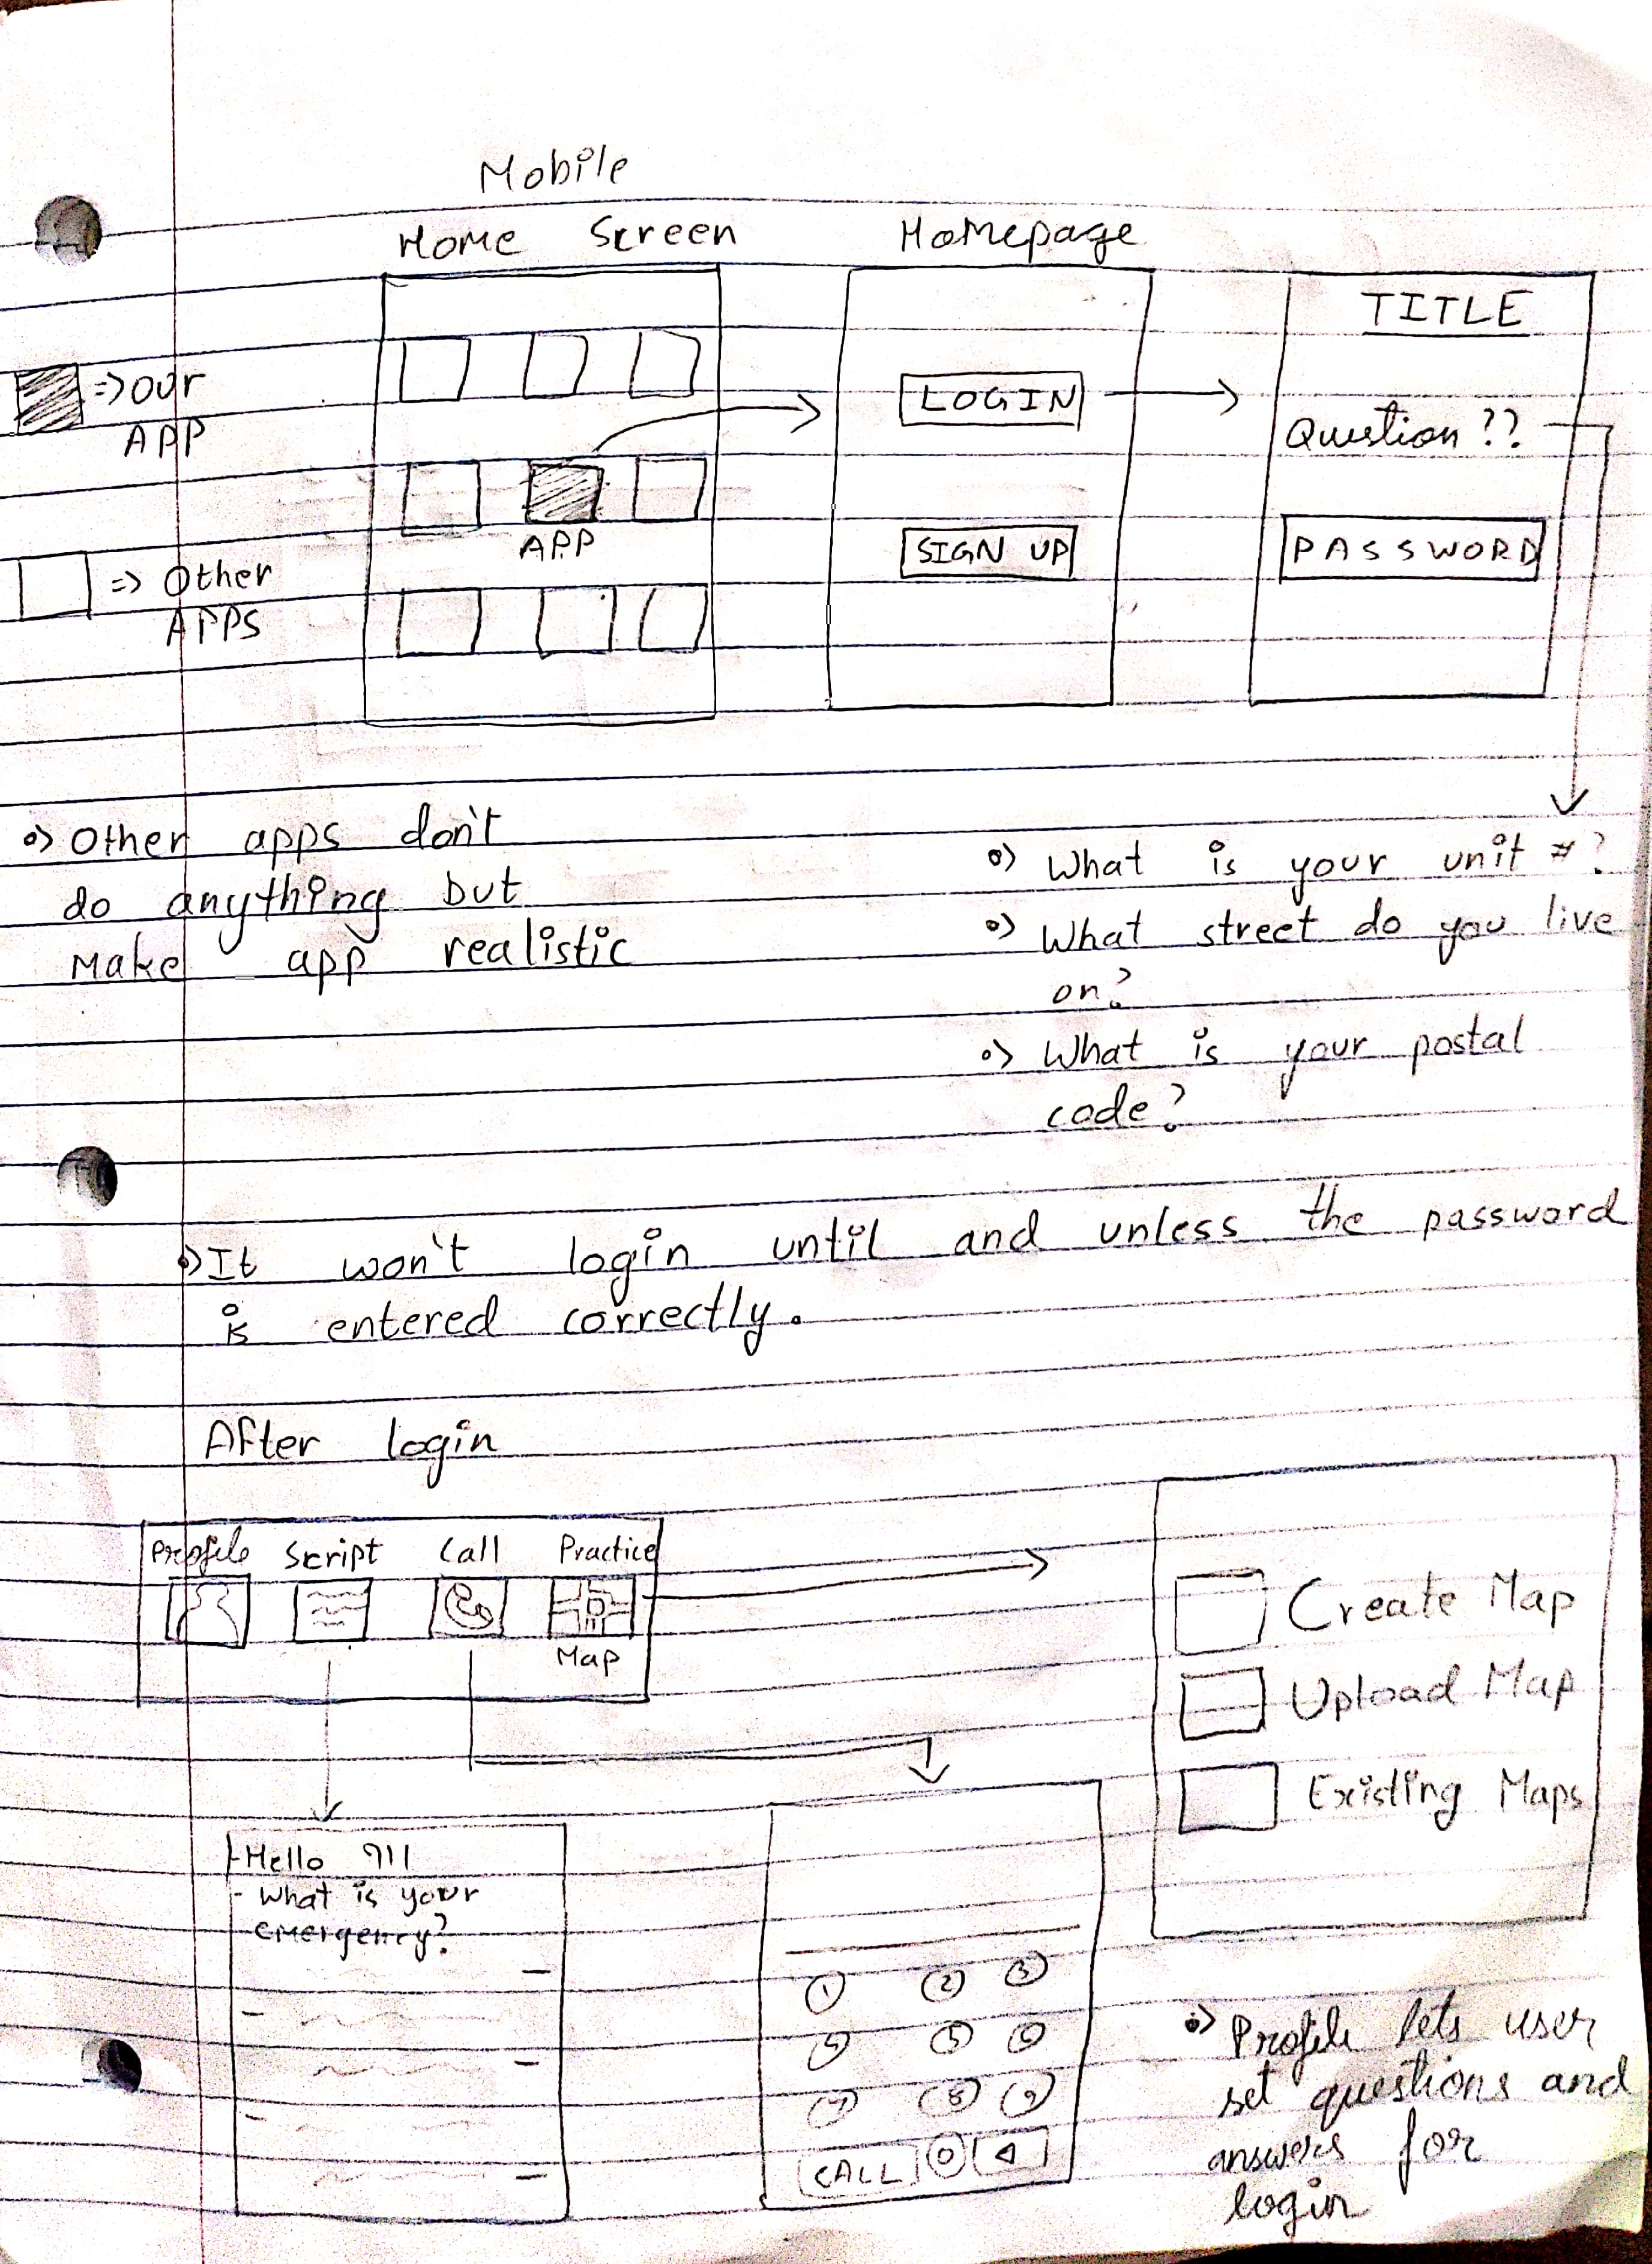 Mobile
Home Screen
Homepage
TITLE
=> our
APP
LOGIN
Question ??
APP
SIGN UP
PASSWORD
=> Other
APPS
Other apps don't
do anything but
Make app realistic
What is your unit #?
What street do you live
on?
What is your postal
code?
It won't login until and unless the password
is entered correctly.
After login
Profile Script Call Practice
Map
Create Map
Upload Map
Existing Maps
-Hello 911
- What is your
emergency?
1 2 3
4 5 6
7 8 9
CALL 0
Profile lets user
set questions and
answers for
login